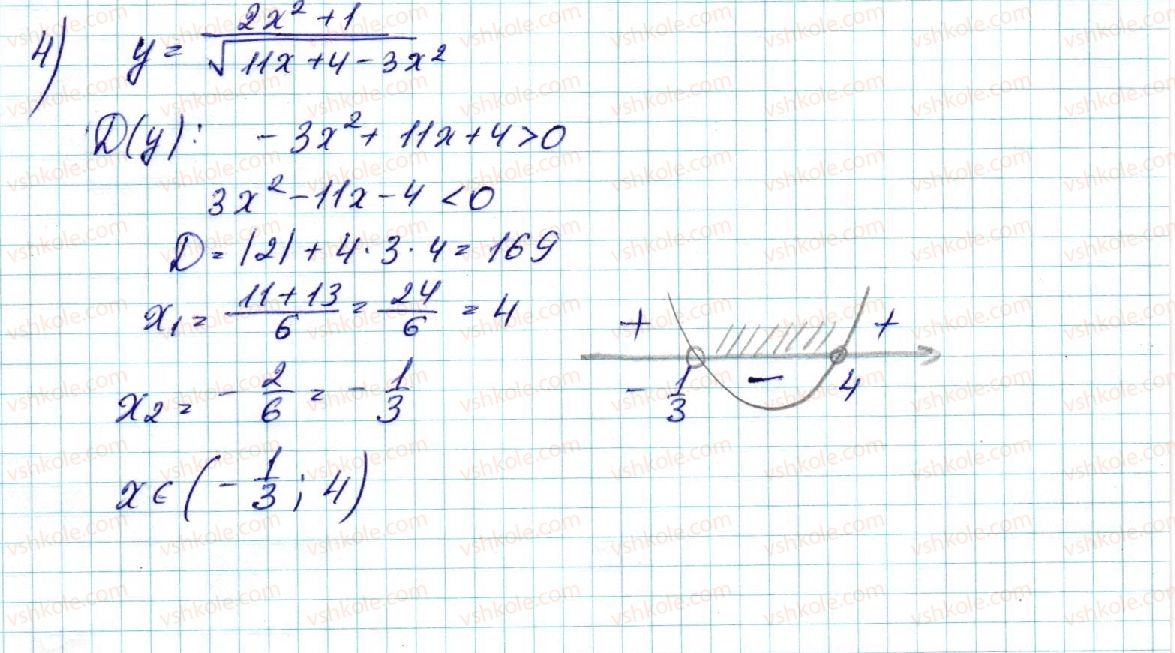 4) y = (2x² + 1) / √(11x + 4 - 3x²)
D(y): -3x² + 11x + 4 > 0
3x² - 11x - 4 < 0
D = 121 + 4 · 3 · 4 = 169
x₁ = (11 + 13)/6 = 24/6 = 4
x₂ = -2/6 = -1/3
+ - +
-1/3 4
x ∈ (-1/3; 4)
vshkole.com